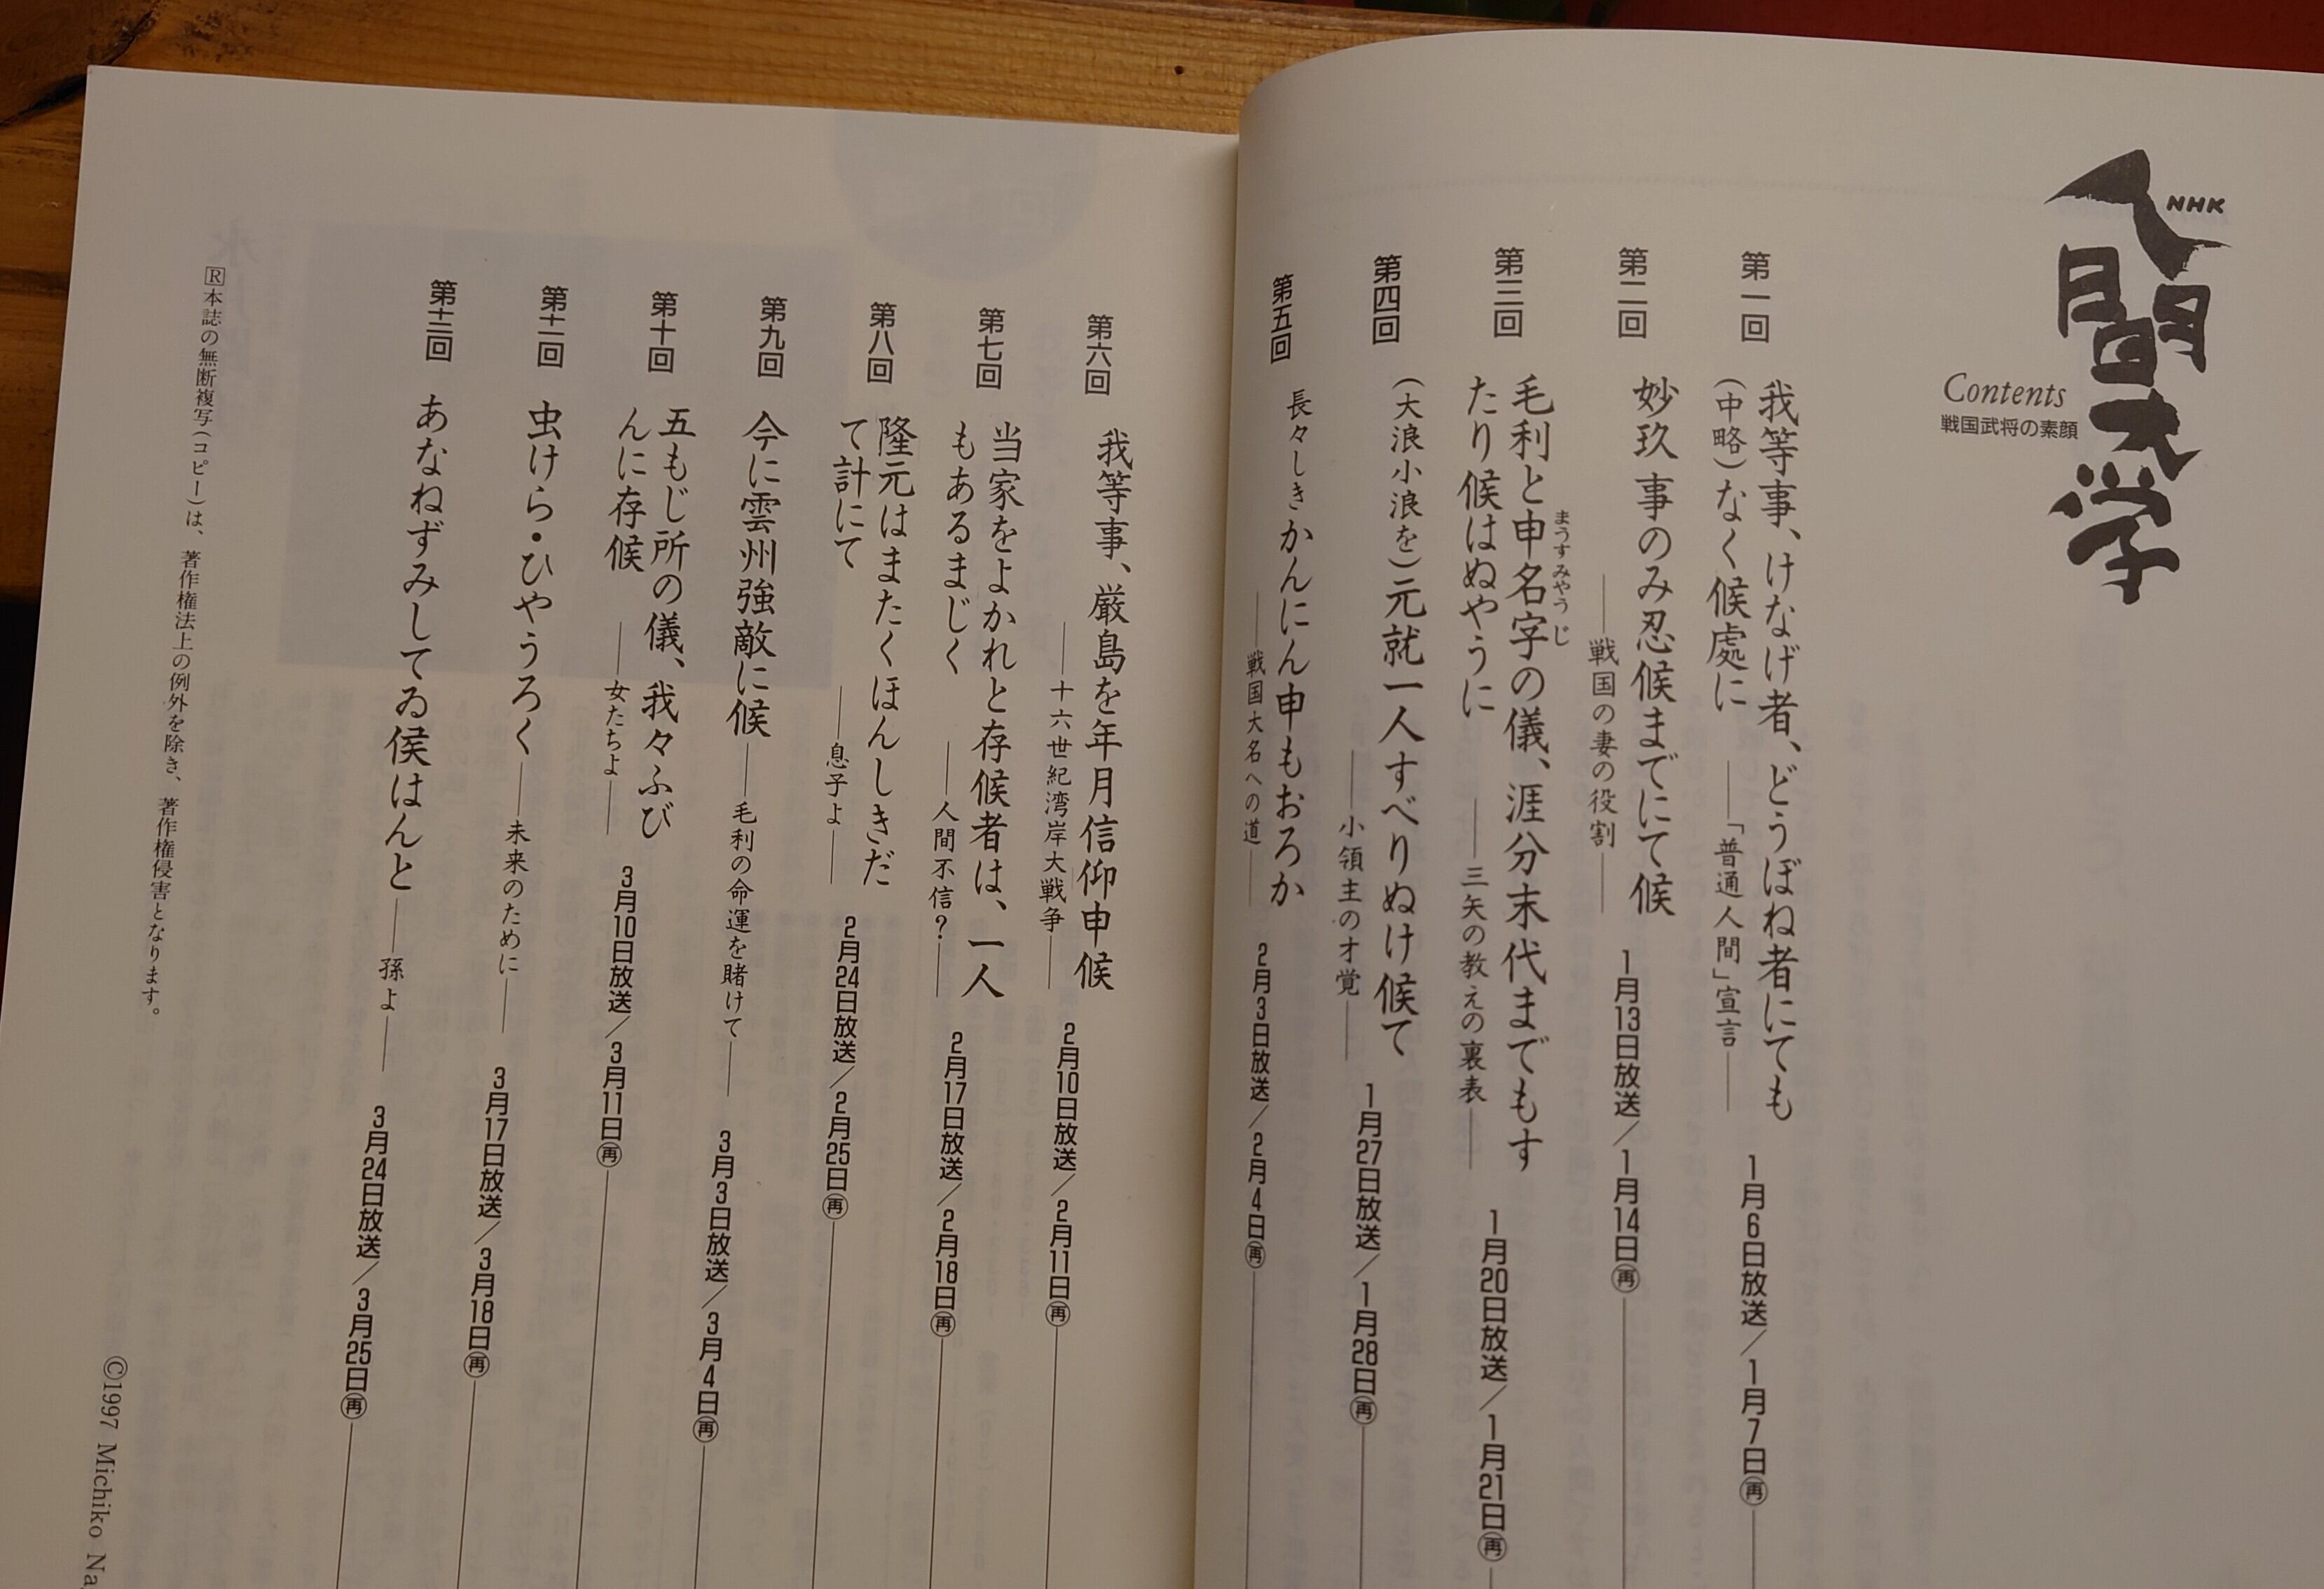 NHK
人間大学
Contents
戦国武将の素顔
第一回
我等事、けなげ者、どうぼね者にても
(中略)なく候處に
――「普通人間」宣言――
1月6日放送／1月7日㊢
第二回
妙玖事のみ忍候までにて候
――戦国の妻の役割――
1月13日放送／1月14日㊢
第三回
毛利と申名字の儀、涯分末代までもす
まうすみやうじ
たり候はぬやうに
――三矢の教えの裏表――
1月20日放送／1月21日㊢
第四回
(大浪小浪を)元就一人すべりぬけ候て
――小領主の才覚――
1月27日放送／1月28日㊢
第五回
長々しきかんにん申もおろか
――戦国大名への道――
2月3日放送／2月4日㊢
第六回
我等事、厳島を年月信仰申候
――十六世紀湾岸大戦争――
2月10日放送／2月11日㊢
第七回
当家をよかれと存候者は、一人
もあるまじく
――人間不信?――
2月17日放送／2月18日㊢
第八回
隆元はまたくほんしきだ
て計にて
――息子よ――
2月24日放送／2月25日㊢
第九回
今に雲州強敵に候――毛利の命運を賭けて――
3月3日放送／3月4日㊢
第十回
五もじ所の儀、我々ふび
んに存候
――女たちよ――
3月10日放送／3月11日㊢
第十一回
虫けら・ひやうろく――未来のために――
3月17日放送／3月18日㊢
第十二回
あなねずみしてゐ候はんと――孫よ――
3月24日放送／3月25日㊢
Ⓡ本誌の無断複写(コピー)は、著作権法上の例外を除き、著作権侵害となります。
©1997 Michiko